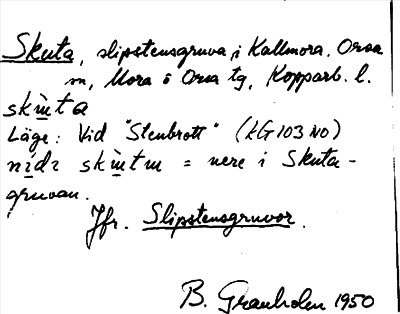 Skuta, slipstensgruva, i Kallmora. Orsa
sn, Mora o Orsa tg, Kopparb. l.
skùta
Läge: Vid "Stenbrott" (KG 103 NO)
nídi skùtun = nere i Skuta-
gruvan.
Jfr. Slipstensgruvor.
B. Granholm 1950